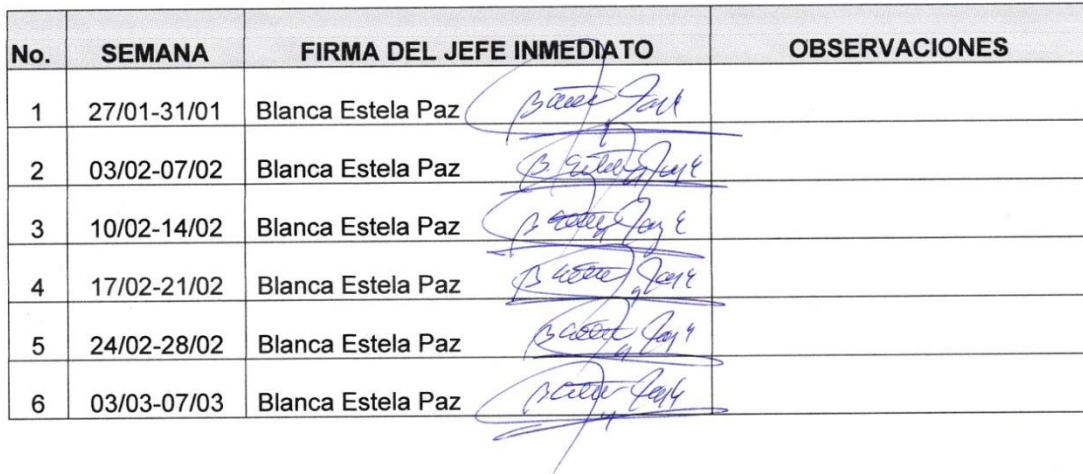 No. SEMANA FIRMA DEL JEFE INMEDIATO OBSERVACIONES
1 27/01-31/01 Blanca Estela Paz
2 03/02-07/02 Blanca Estela Paz
3 10/02-14/02 Blanca Estela Paz
4 17/02-21/02 Blanca Estela Paz
5 24/02-28/02 Blanca Estela Paz
6 03/03-07/03 Blanca Estela Paz